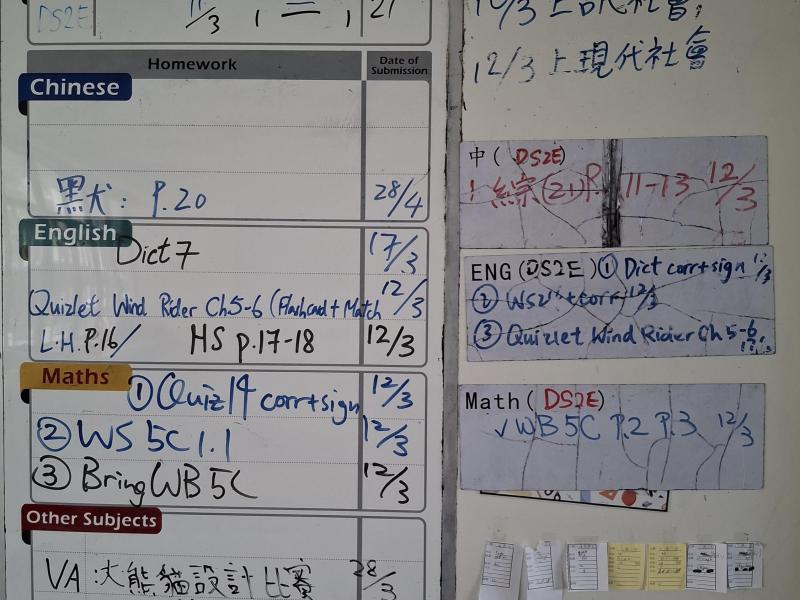 DS2E 11/3 , 二 , 21
Homework Date of Submission
Chinese
黑犬: P.20 28/4
English
Dict 7 17/3
Quizlet Wind Rider Ch5-6 (Flashcard + Match 12/3
L.H. P.16/ HS p.17-18 12/3
Maths
① Quiz 14 corr+sign 12/3
② WS 5C 1.1 12/3
③ Bring WB 5C 12/3
Other Subjects
VA: 大熊貓設計比賽 28/3
10/3 上現代社會,
12/3 上現代社會
中( DS2E)
綜(2上)P. 11-13 12/3
ENG (DS2E) ① Dict corr+sign
② WS 12/3
③ Quizlet Wind Rider Ch 5-6
Math (DS2E)
✓ WB 5C P.2 P.3 12/3